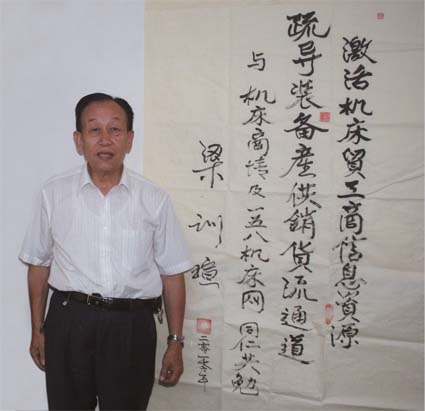 激活机床貿工商信息资源
疏导装备產供銷貨流通道
与机床商情及一五八机床网同仁共勉
梁训瑄